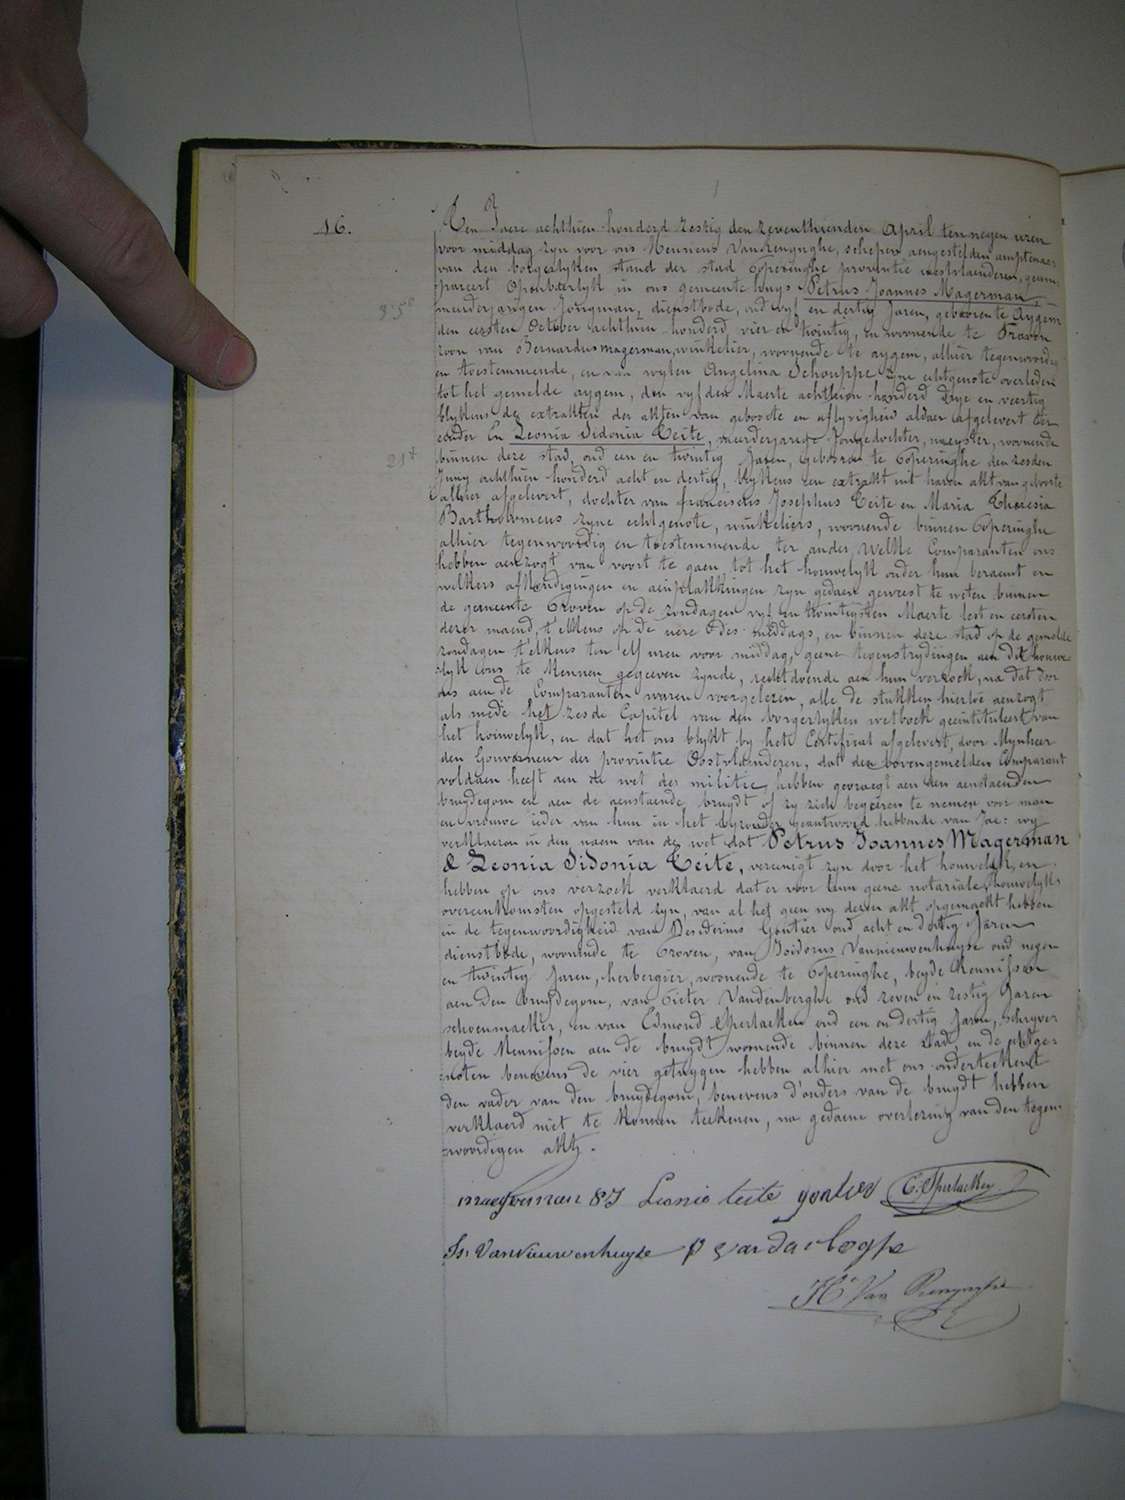 16.
Den Jaere achthien honderd zestig den zeventhienden April ten negen uren
voor middag zyn voor ons Henricus Vanrenynghe, schepen aengestelden amptenaer
van den borgerlyken stand der stad Poperinghe provintie westvlaenderen, gecom-
pareert Openbaerlyk in ons gemeente huys Petrus Joannes Magerman
meerderjarigen Jongman, dienstbode, oud vyf en dertig Jaren, geboren te Aygem
35
den eersten October achthien honderd vier en twintig, en woonende te Proven
zoon van Bernardus magerman, winkelier, woonende te aygem, alhier tegenwoordig
en toestemmende, en van wylen Angelina Schouppe zyne echtgenote overleden
tot het gemelde aygem, den vyfden Maerte achthien honderd drye en veertig
blykens de extrakten der akten van geboorte en aflyvigheid aldaer afgelevert ter
eender En Leonia Sidonia Teite, meerderjarige Jongedochter, naeyster, woonende
21
binnen deze stad, oud een en twintig Jaren, geboren te Poperinghe den zesden
Juny achthien honderd acht en dertig, blykens een extrakt uit haren akt van geboorte
alhier afgelevert, dochter van franciscus Josephus Teite en Maria Theresia
Bartholomeus zyne echtgenote, winkeliers, woonende binnen Poperinghe
alhier tegenwoordig en toestemmende ter ander, Welke Comparanten ons
hebben aenzogt van voort te gaen tot het houwelyk onder hun beraemt en
welkers afkondigingen en aenplakkingen zyn gedaen geweest te weten binnen
de gemeente Proven op de zondagen vyf en twintigsten Maerte lest en eersten
dezer maend, t'elkens op de uere des middags, en binnen deze stad op de gemelde
zondagen t'elkens ten elf uren voor middag, geene tegenstrydingen aen dit houwe-
lyk ons te kennen gegeven zynde, rechtdoende aen hun verzoek, na dat door
ons aen de Comparanten waren voorgelezen, alle de stukken hiertoe aenzogt
als mede het zesde Capitel van den borgerlyken wetboek geeintituleert van
het houwelyk, en dat het ons blykt by het Certificat afgelevert door Mynheer
den Gouverneur der provintie Oostvlaenderen, dat den bovengemelden Comparant
voldaen heeft aen de wet des militie, hebben gevraegt aen den aenstaenden
bruydegom en aen de aenstaende bruydt of zy zich begeeren te nemen voor man
en vrouwe ieder van hun in het byzonder geantwoord hebbende van Jae: wy
verklaeren in den naem van de wet dat Petrus Joannes Magerman
& Leonia Sidonia Teite, vereenigt zyn door het houwelyk, en
hebben op ons verzoek verklaerd dat er voor hun geene notariale houwelyks
overeenkomsten opgesteld zyn, van al het geen wy dezen akt opgemaekt hebben
in de tegenwoordigheid van Desiderius Gontier oud acht en dertig Jaren
dienstbode, woonende te Proven, van Isidorus Vannieuwenhuyse oud negen
en twintig Jaren, herbergier, woonende te Poperinghe, beyde kennissen
aen den bruydegom, van Pieter Vandenberghe oud zeven en zestig Jaren
schoenmaeker, en van Edmond Sperlaeken oud een en dertig Jaren, schryver
beyde kennissen aen de bruydt woonende binnen deze stad, en de echtge-
noten benevens de vier getuygen hebben alhier met ons onderteekent
den vader van den bruydegom, benevens d'ouders van de bruydt hebben
verklaerd niet te konnen teekenen, na gedaene overlezing van den tegen-
woordigen akt.
magerman PJ Leonie teite gontier E. Sperlaeken
Is. Vannieuwenhuyse p vandenberghe
He Van Renynghe